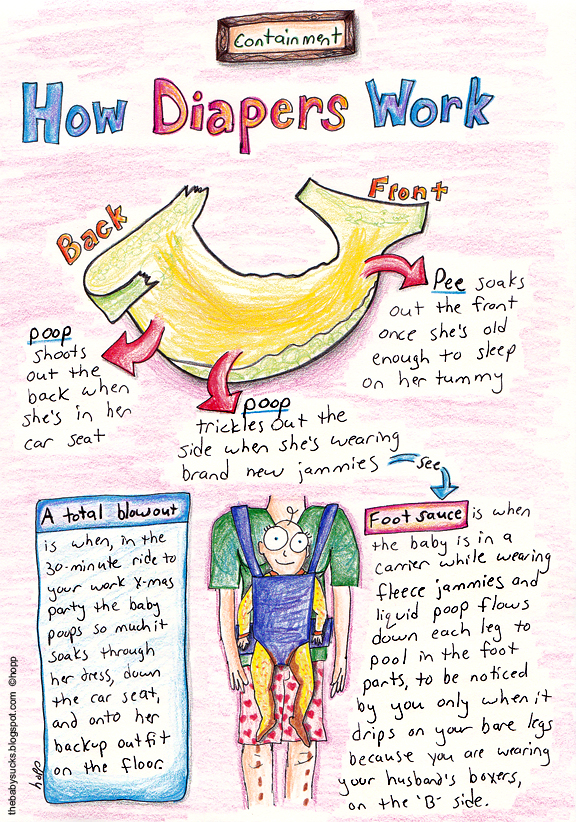 Containment
How Diapers Work
Back
Front
Pee soaks
out the front
once she's old
enough to sleep
on her tummy
poop
shoots
out the
back when
she's in her
car seat
poop
trickles out the
side when she's wearing
brand new jammies
see
A total blowout
is when, in the
30-minute ride to
your work X-mas
party the baby
poops so much it
soaks through
her dress, down
the car seat,
and onto her
backup outfit
on the floor.
hopp
Foot sauce is when
the baby is in a
carrier while wearing
fleece jammies and
liquid poop flows
down each leg to
pool in the foot
parts, to be noticed
by you only when it
drips on your bare legs
because you are wearing
your husband's boxers,
on the 'B- side.
thebabysucks.blogspot.com ©hopp